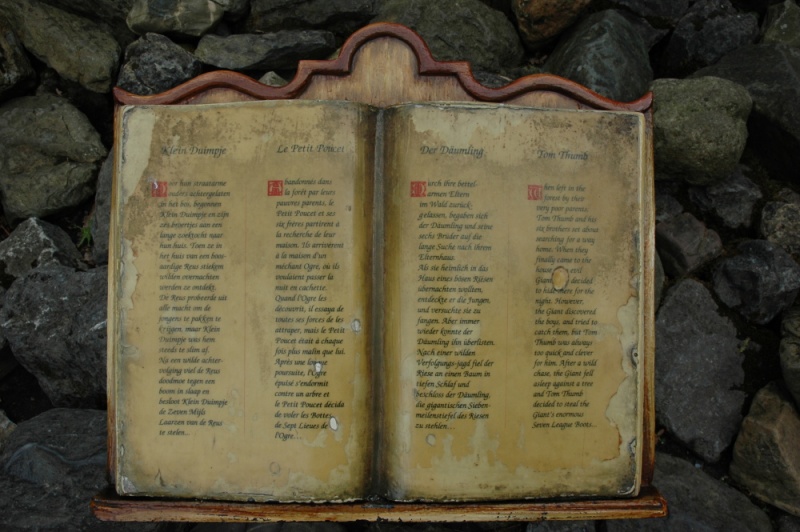 Klein Duimpje
Door hun straatarme
ouders achtergelaten
in het bos, begonnen
Klein Duimpje en zijn
zes broertjes aan een
lange zoektocht naar
hun huis. Toen ze in
het huis van een boos-
aardige Reus stiekem
wilden overnachten
werden ze ontdekt.
De Reus probeerde uit
alle macht om de
jongens te pakken te
krijgen, maar Klein
Duimpje was hem
steeds te slim af.
Na een wilde achter-
volging viel de Reus
doodmoe tegen een
boom in slaap en
besloot Klein Duimpje
de Zeven Mijls
Laarzen van de Reus
te stelen...
Le Petit Poucet
Abandonnés dans
la forêt par leurs
pauvres parents, le
Petit Poucet et ses
six frères partirent à
la recherche de leur
maison. Ils arrivèrent
à la maison d'un
méchant Ogre, où ils
voulaient passer la
nuit en cachette.
Quand l'Ogre les
découvrit, il essaya de
toutes ses forces de les
attraper, mais le Petit
Poucet était à chaque
fois plus malin que lui.
Après une longue
poursuite, l'Ogre
épuisé s'endormit
contre un arbre et
le Petit Poucet décida
de voler les Bottes
de Sept Lieues de
l'Ogre...
Der Däumling
Durch ihre bettel-
armen Eltern
im Wald zurück-
gelassen, begaben sich
der Däumling und seine
sechs Brüder auf die
lange Suche nach ihrem
Elternhaus.
Als sie heimlich in das
Haus eines bösen Riesen
übernachten wollten,
entdeckte er die Jungen,
und versuchte sie zu
fangen. Aber immer
wieder konnte der
Däumling ihn überlisten.
Nach einer wilden
Verfolgungs-jagd fiel der
Riese an einen Baum in
tiefen Schlaf und
beschloss der Däumling,
die gigantischen Sieben-
meilenstiefel des Riesen
zu stehlen...
Tom Thumb
When left in the
forest by their
very poor parents
Tom Thumb and his
six brothers set about
searching for a way
home. When they
finally came to the
house evil
Giant decided
to hide there for the
night. However,
the Giant discovered
the boys, and tried to
catch them, but Tom
Thumb was always
too quick and clever
for him. After a wild
chase, the Giant fell
asleep against a tree
and Tom Thumb
decided to steal the
Giant's enormous
Seven League Boots..